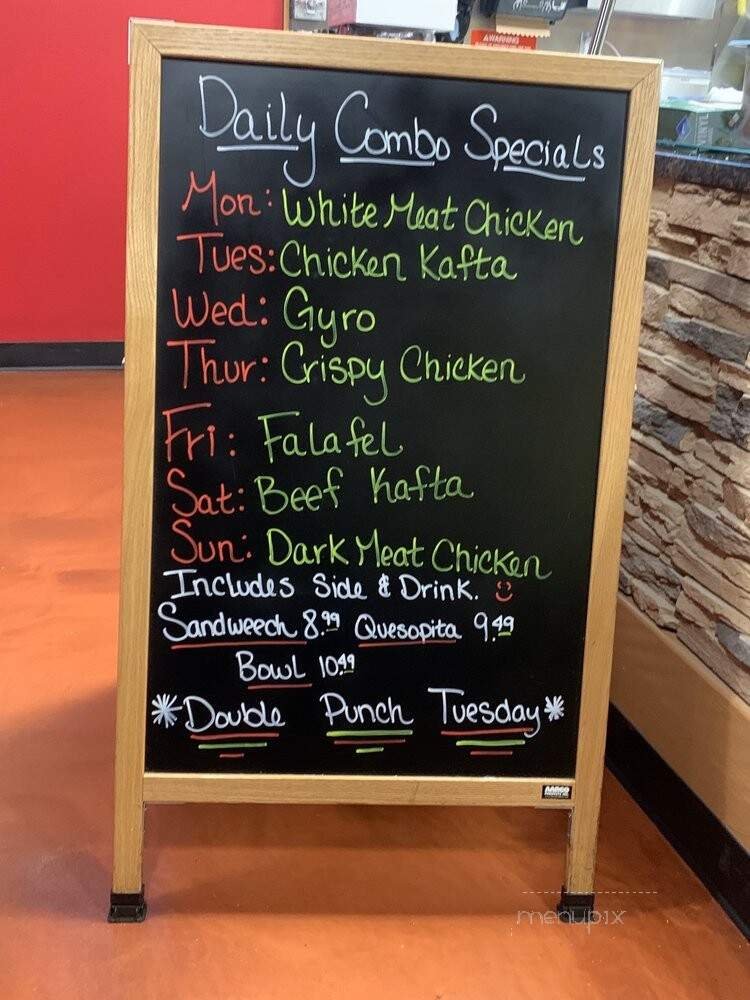 WARNING
Daily Combo Specials
Mon: White Meat Chicken
Tues: Chicken Kafta
Wed: Gyro
Thur: Crispy Chicken
Fri: Falafel
Sat: Beef Kafta
Sun: Dark Meat Chicken
Includes Side & Drink.
Sandweech 8.99 Quesopita 9.49
Bowl 10.49
*Double Punch Tuesday*
AARCO
menupix